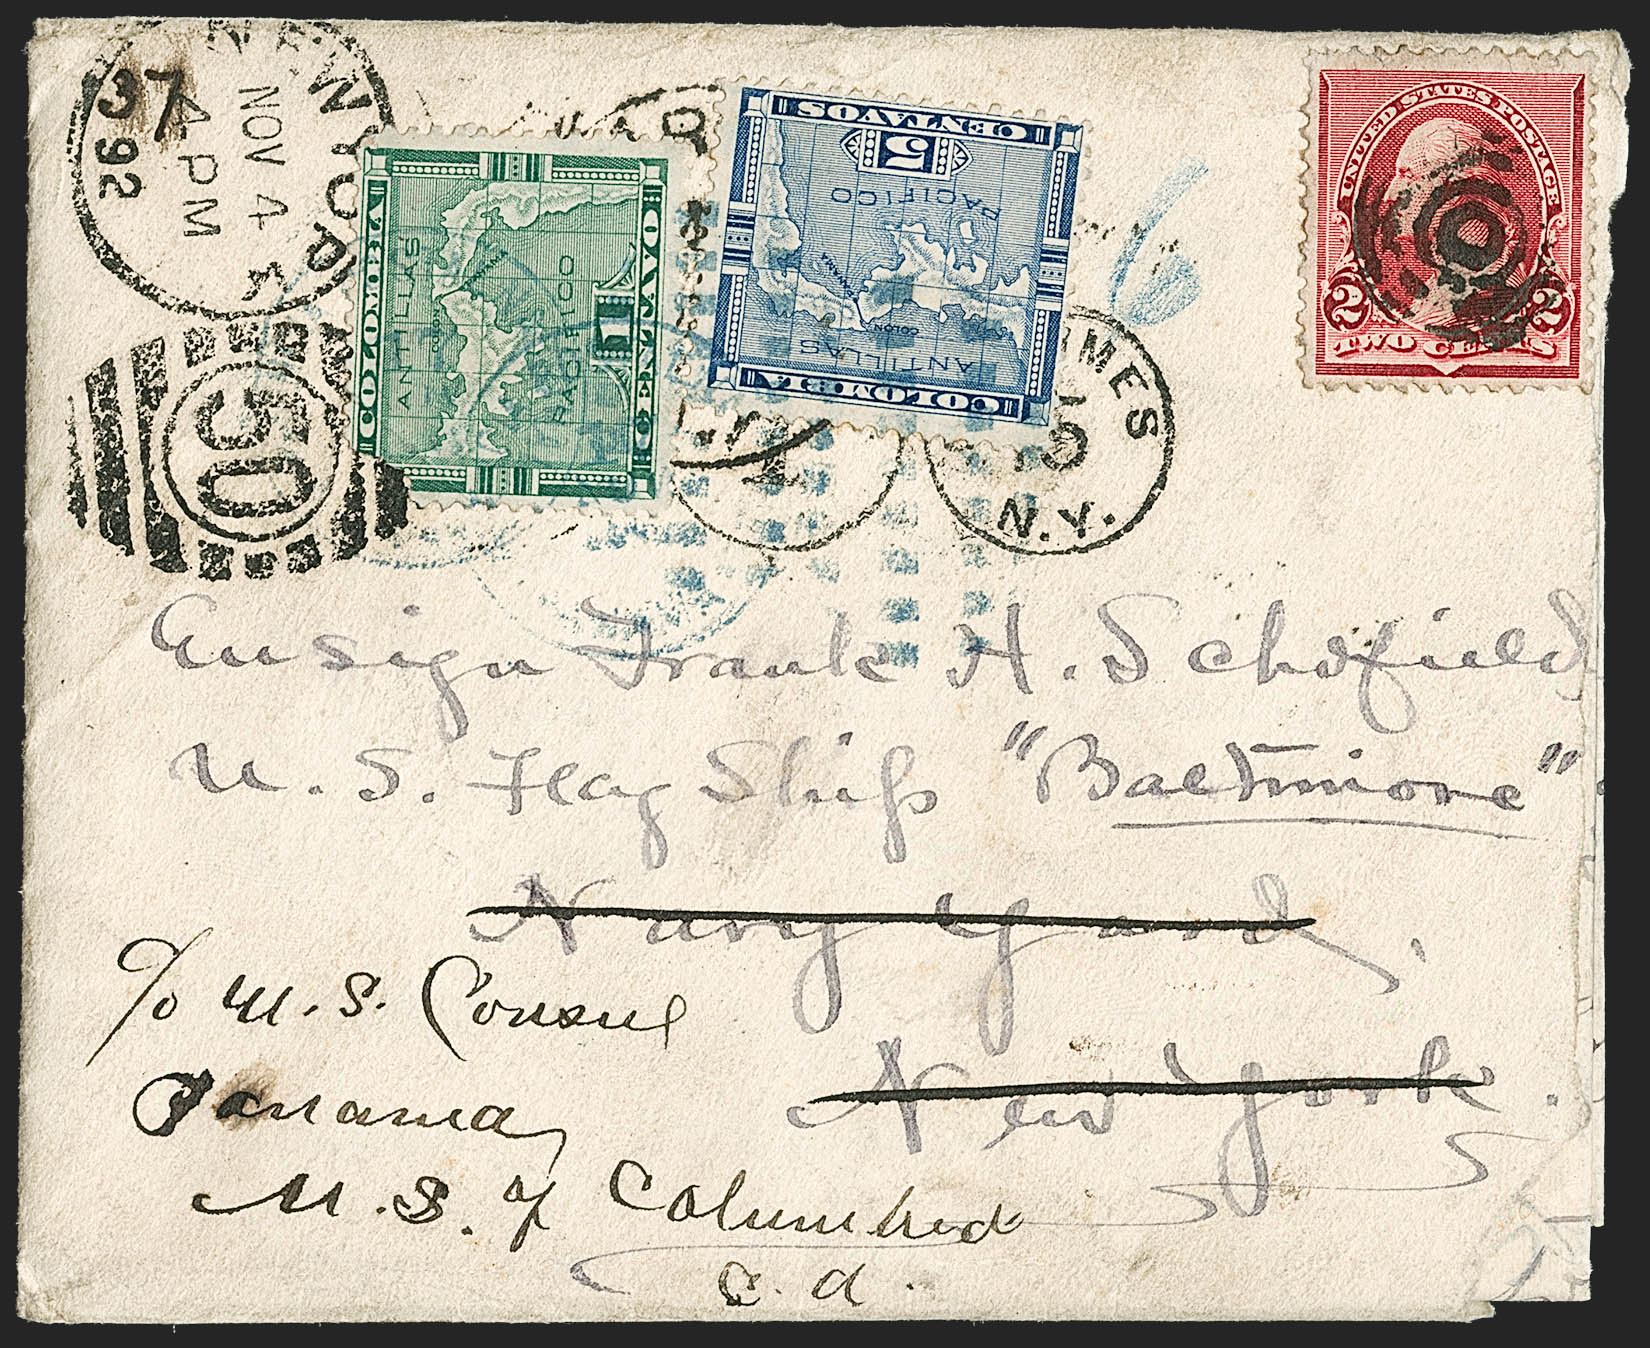 NEW YOR
NOV 4
4 PM
37
92
50
COLOMBIA
ANTILLAS
COLON
PANAMA
PACIFICO
1
CENTAVO
CENTAVOS
5
PACIFICO
PANAMA
COLON
ANTILLAS
COLOMBIA
N.Y.
UNITED STATES POSTAGE
2 2
TWO CENTS
Ensign Frank H. Schofield
U. S. Flag Ship "Baltimore"
Navy Yard,
New York.
c/o U. S. Consul
Panama,
U. S. of Columbia
C. A.